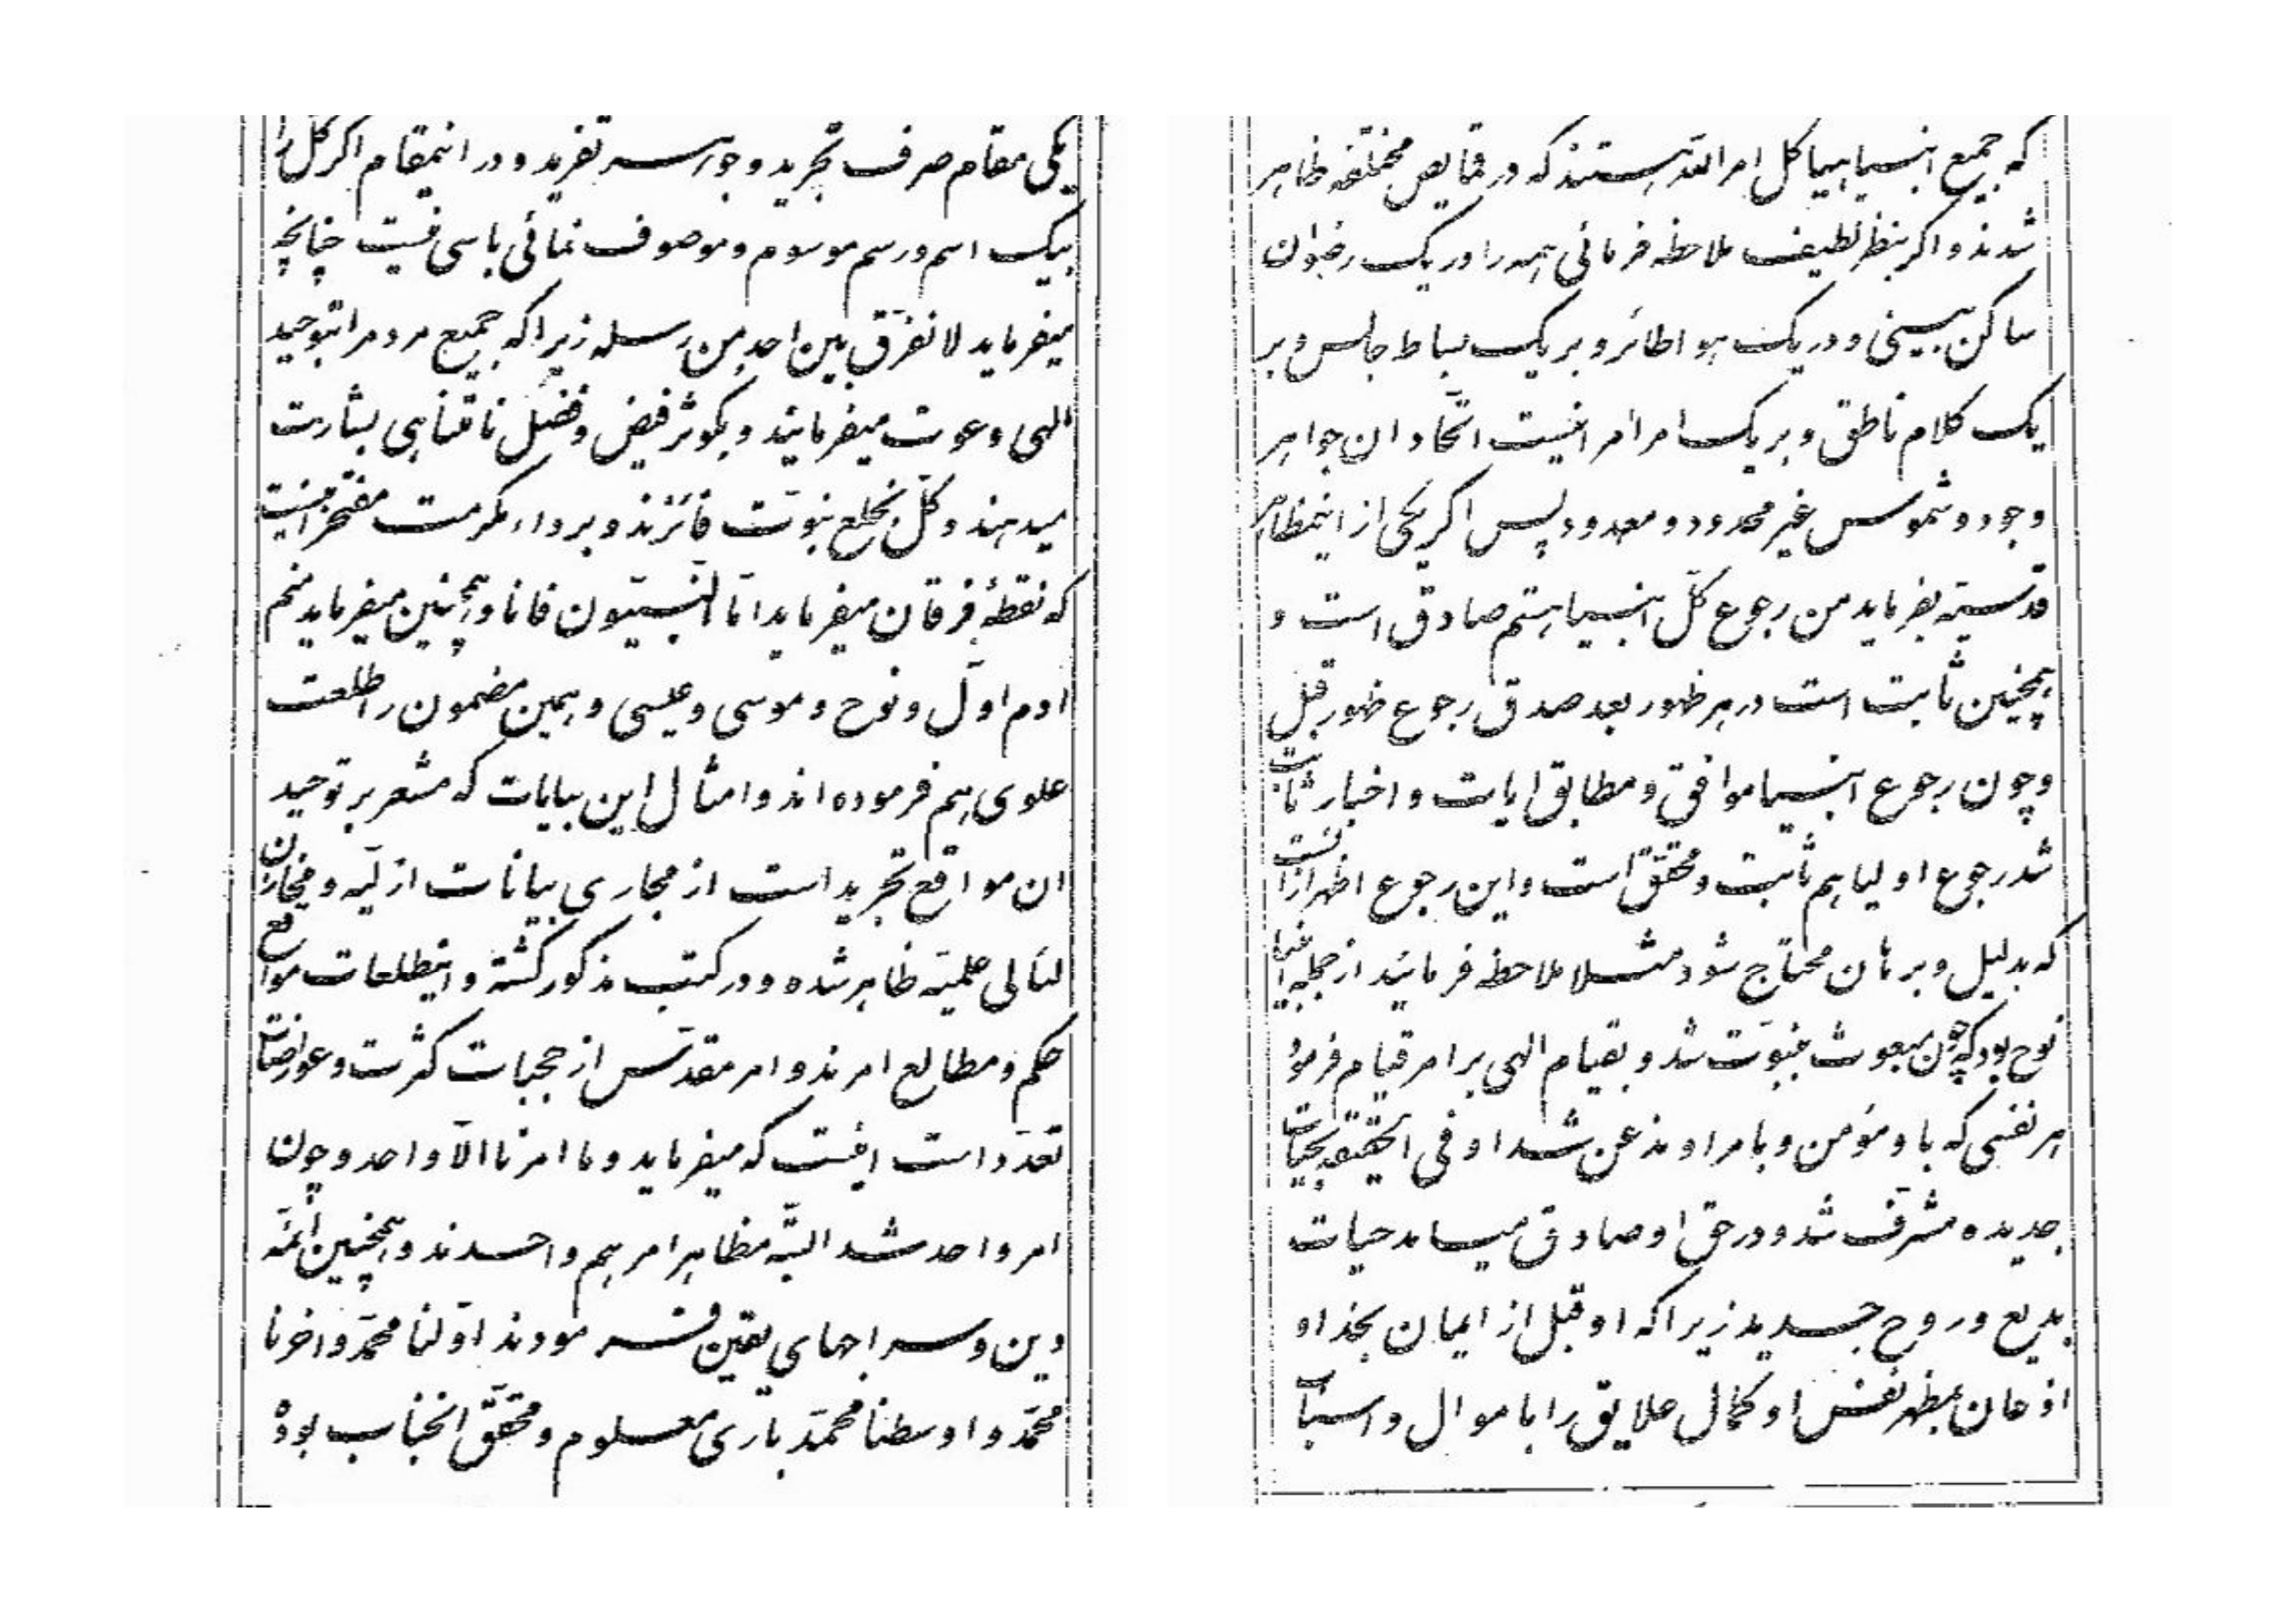 یکی مقام صرف تجرید و جوهر تفرید و در اینمقام اکر کل را
بیک اسم و رسم موسوم و موصوف نمائی باسی نیست چنانچه
میفرماید لا نفرّق بین احد من رسله زیرا که جمیع مردم را بتوحید
الهی دعوت میفرمایند و بکوثر فیض و فضل نا متناهی بشارت
میدهند و کلّ بخلع نبوّت فائزند و برداء مکرمت مفتخر اینست
که نقطهٔ فرقان میفرماید امّا النّبیّون فانا و همچنین میفرماید منم
ادم اوّل و نوح و موسی و عیسی و همین مضمون را طلعت
علوی هم فرموده اند و امثال این بیانات که مشعر بر توحید
ان مواقع تجرید است از مجاری بیانات ازلیّه و مخازن
لئالی علمیّه ظاهر شده و در کتب مذکور کشته و اینطلعات مواقع
حکم و مطالع امرند و امر مقدّس از حجبات کثرت و عوارضات
تعدّد است اینست که میفرماید و ما امرنا الّا واحد و چون
امر واحد شد البتّه مظاهر امر هم واحدند و همچنین ائمّه
دین و سراجهای یقین فرمودند اوّلنا محمّد و اخرنا
محمّد و اوسطنا محمّد باری معلوم و محقّق انجناب بوده
که جمیع انبیا هیاکل امر اللّه هستند که در قمایص مختلفه ظاهر
شدند و اکر بنظر لطیف ملاحظه فرمائی همه را در یک رضوان
ساکن بینی و در یک هوا طائر و بر یک بساط جالس و بر
یک کلام ناطق و بر یک امر امر اینست اتّحاد ان جواهر
وجود و شموس غیر محدود و معدود پس اکر یکی از اینمظاهر
قدسیّه بفرماید من رجوع کلّ انبیا هستم صادق است و
همچنین ثابت است در هر ظهور بعد صدق رجوع ظهور قبل
و چون رجوع انبیا موافق و مطابق ایات و اخبار ثابت
شد رجوع اولیا هم ثابت و محقّق است و این رجوع اظهر از انست
که بدلیل و برهان محتاج شود مثلا ملاحظه فرمائید از جمله انبیا
نوح بود که چون مبعوث بنبوّت شد و بقیام الهی بر امر قیام فرمود
هر نفسی که باو مؤمن و بامر او مذعن شد او فی الحقیقه بحیات
جدیده مشرّف شد و در حق او صادق میامد حیات
بدیع و روح جدید زیرا که او قبل از ایمان بخدا و
اذعان بمظهر نفس او کمال علایق را باموال و اسباب